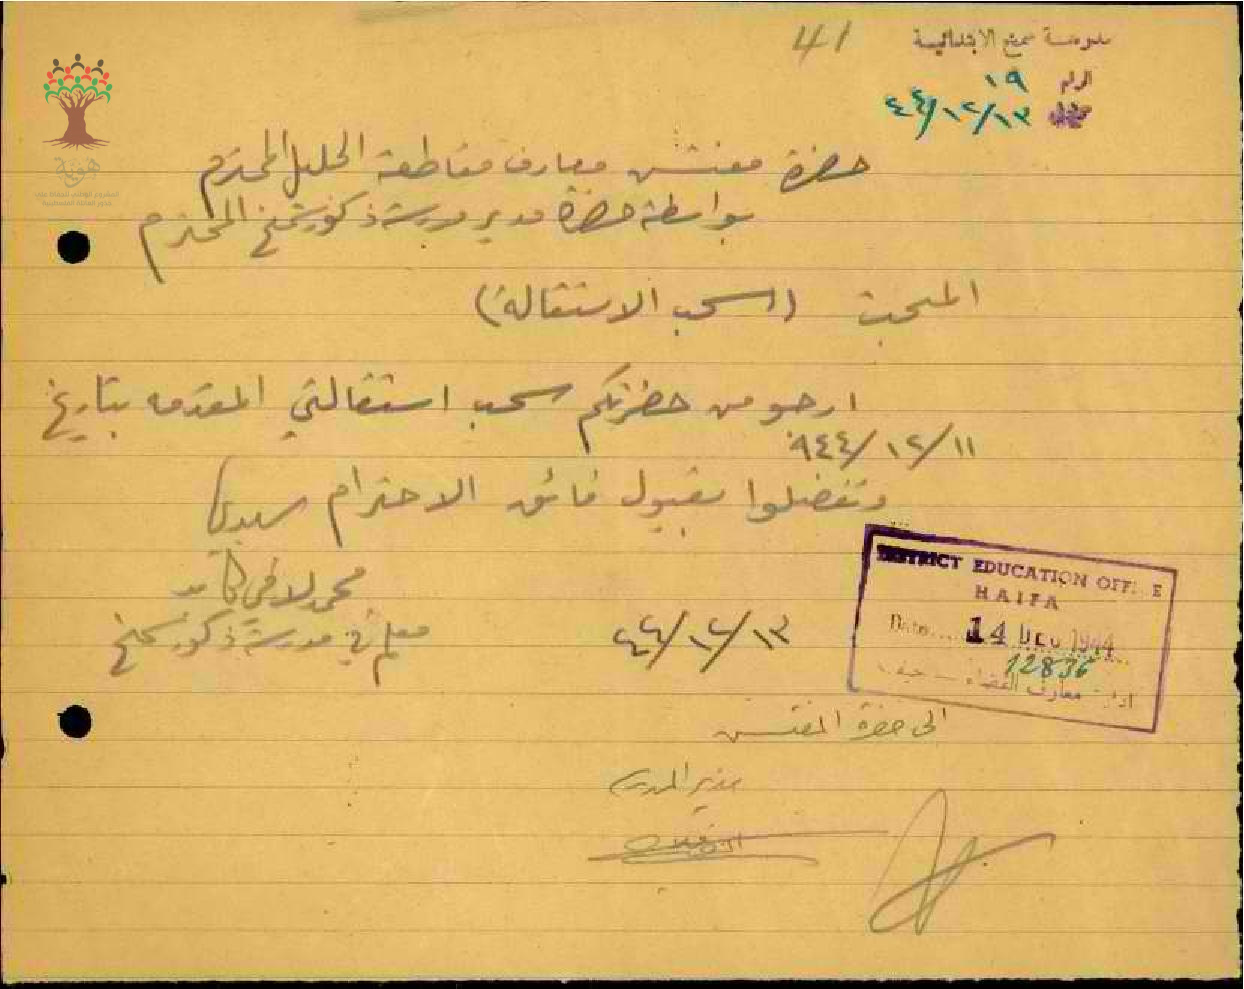 41
مدرسة سمخ الابتدائية
الرقم ١٩
٤٤/١٢/١٣
هوية
حضرة مفتش معارف مقاطعة الجليل المحترم
بواسطة حضرة مدير مدرسة ذكور سمخ المحترم
المبحث (سحب الاستقالة)
ارجو من حضرتكم سحب استقالتي المقدمه بتاريخ
٩٤٤/١٢/١١
وتفضلوا بقبول فائق الاحترام سيدي
محمد لافي
معلم في مدرسة ذكور سمخ
٤٤/١٢/١٣
DISTRICT EDUCATION OFFICE
HAIFA
Date.... 14 DEC 1944
12836
ادارة معارف القضاء — حيفا
الى حضرة المفتش
مدير المدرسة